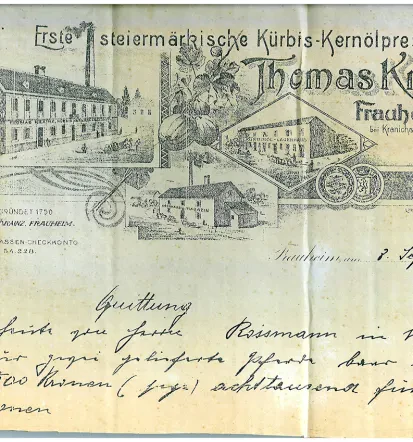 Erste steiermärkische Kürbis-Kernölpre
Thomas Kr
Frauhe
bei Kranichs
GRÜNDET 1790
KRAINZ, FRAUHEIM.
ASSEN-CHECKKONTO
Frauheim, am 8. Se
Quittung
heute von Herrn Rossmann in
für zwei gelieferte Pferde baar
500 Kronen ( achttausend fün
onen